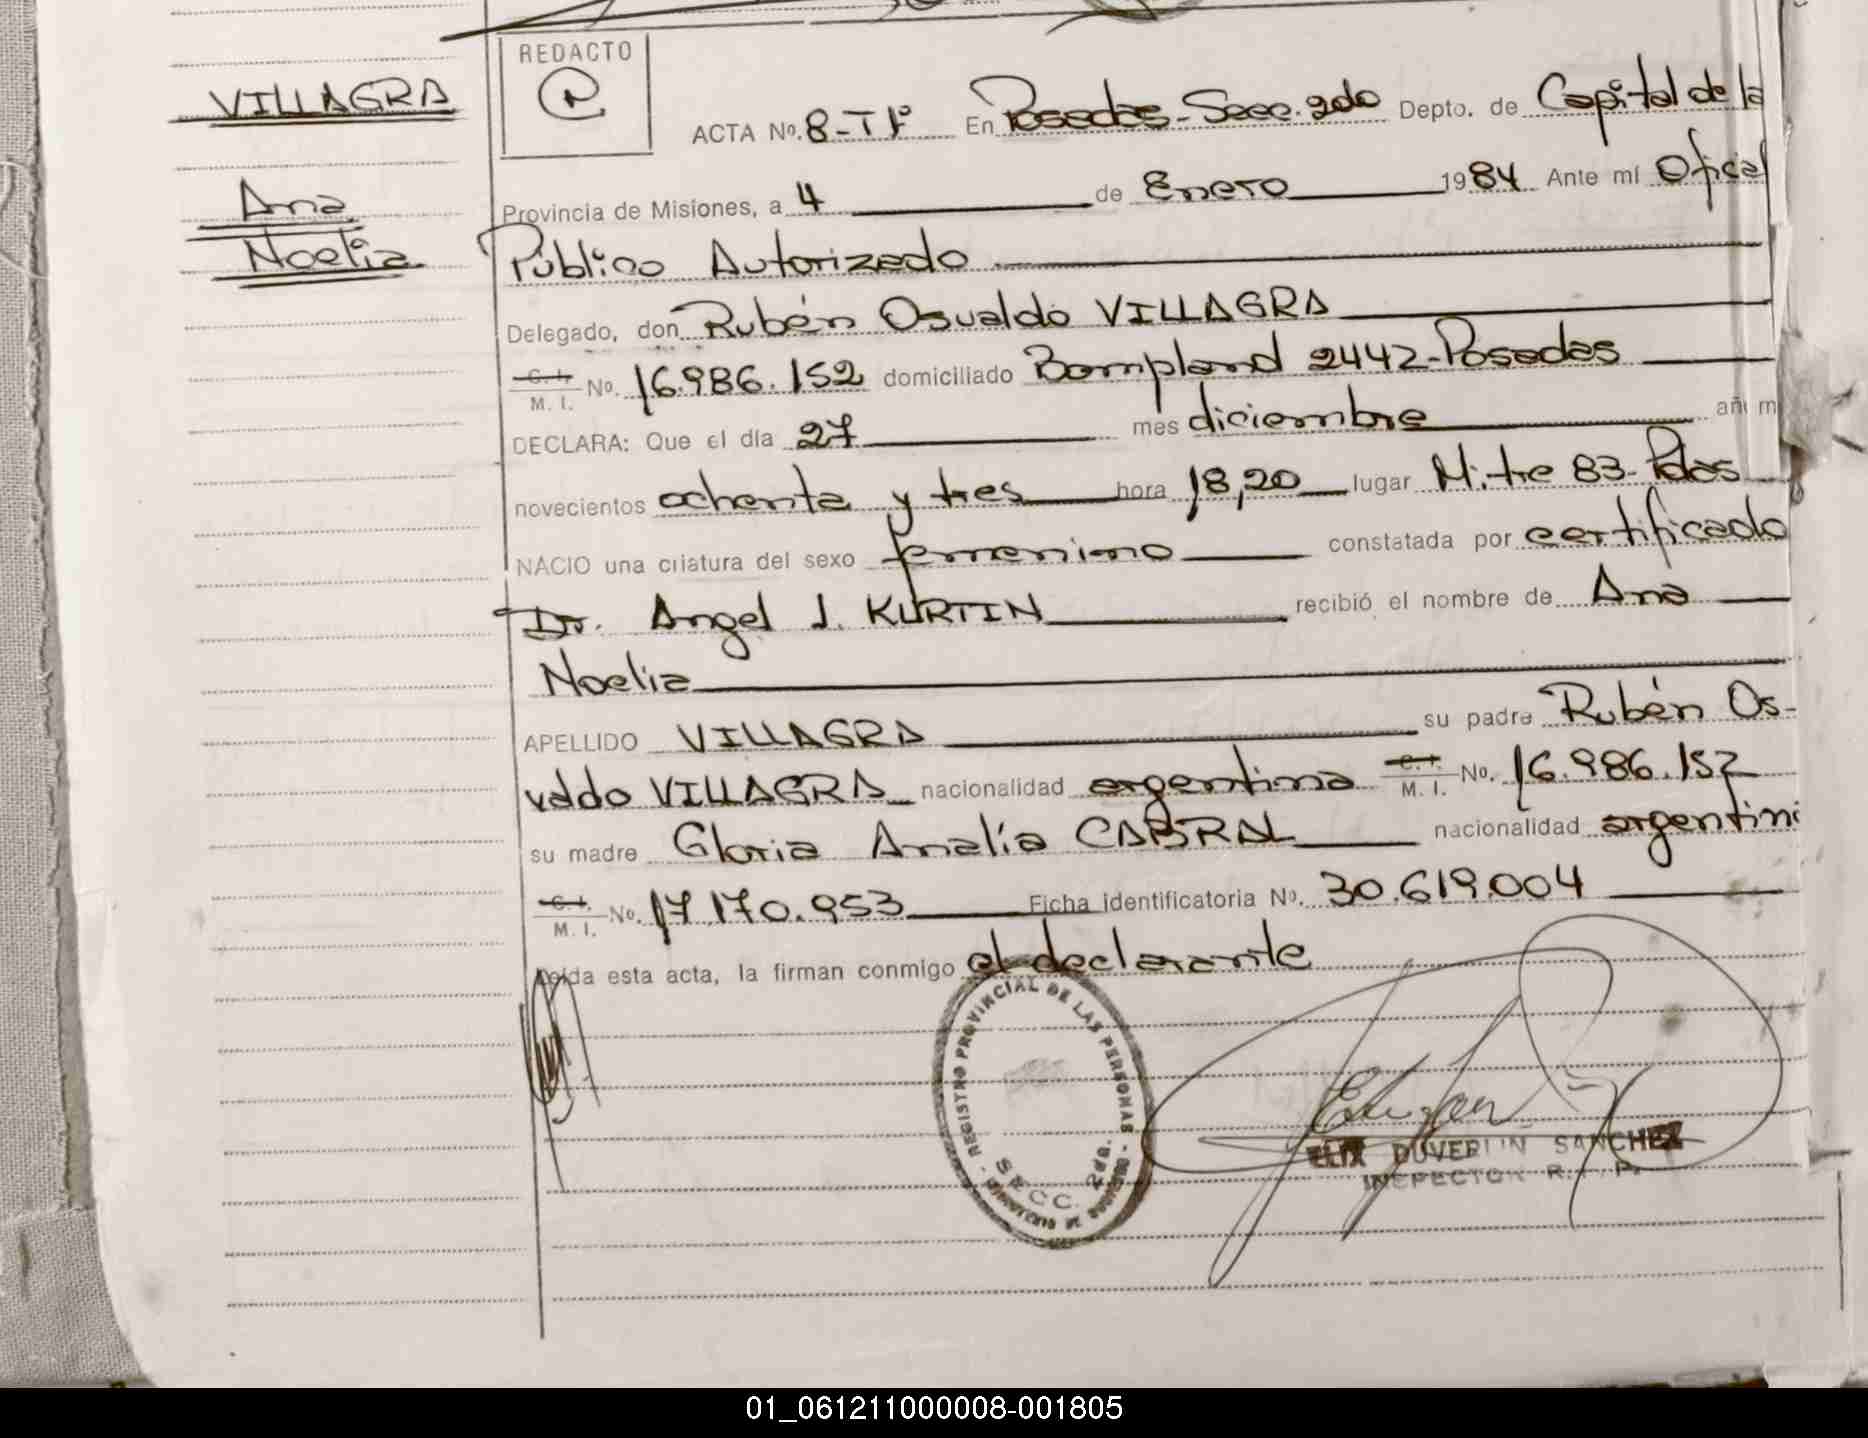 VILLAGRA
Ana
Noelia
REDACTO
ACTA Nº. 8-Tº1º En Posadas-Secc. 2da Depto. de Capital de la
Provincia de Misiones, a 4 de Enero 1984 Ante mí Oficial
Público Autorizado
Delegado, don Rubén Osvaldo VILLAGRA
C. I. M. I. No. 16.986.152 domiciliado Bompland 2442-Posadas
DECLARA: Que el día 27 mes diciembre añ m
novecientos ochenta y tres hora 18,20 lugar Mitre 83-Pdas
NACIO una criatura del sexo femenino constatada por certificado
Dr. Angel J. KURTIN recibió el nombre de Ana
Noelia
APELLIDO VILLAGRA su padre Rubén Os-
valdo VILLAGRA nacionalidad argentina C. I. M. I. No. 16.986.152
su madre Gloria Amalia CABRAL nacionalidad argentin
C. I. M. I. No. 17.170.953 Ficha identificatoria Nº. 30.619.004
Leída esta acta, la firman conmigo el declarante
REGISTRO PROVINCIAL DE LAS PERSONAS
SECC. 2da.
DUVERLIN SANCHEZ
INSPECTOR R. P. P.
01_061211000008-001805